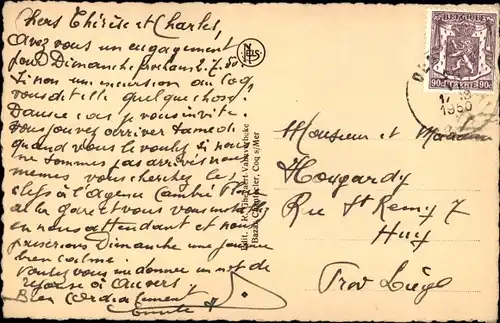 Chers Thérèse et Charles,
Avez vous un engagement
pour Dimanche prochain 2.7.50
Si non une excursion au Coq,
vous dit elle quelque chose?
Dans ce cas je vous invite.
Vous pouvez arriver Samedi
quand vous le voulez si nous
ne sommes pas arrivés nous
mêmes vous cherchez les
clefs à l'Agence
de la gare et vous vous
en nous attendant et nous
passerons Dimanche une journée
bien calme.
Voulez vous me donner un mot de
réponse à Anvers?
Bien cordialement
NELS
Edit.
Bazar Coq s/Mer
BELGIQUE
90c 90c
1950
Monsieur et Madame
Hougardy
Rue St Remy 7
Huy
Prov Liège